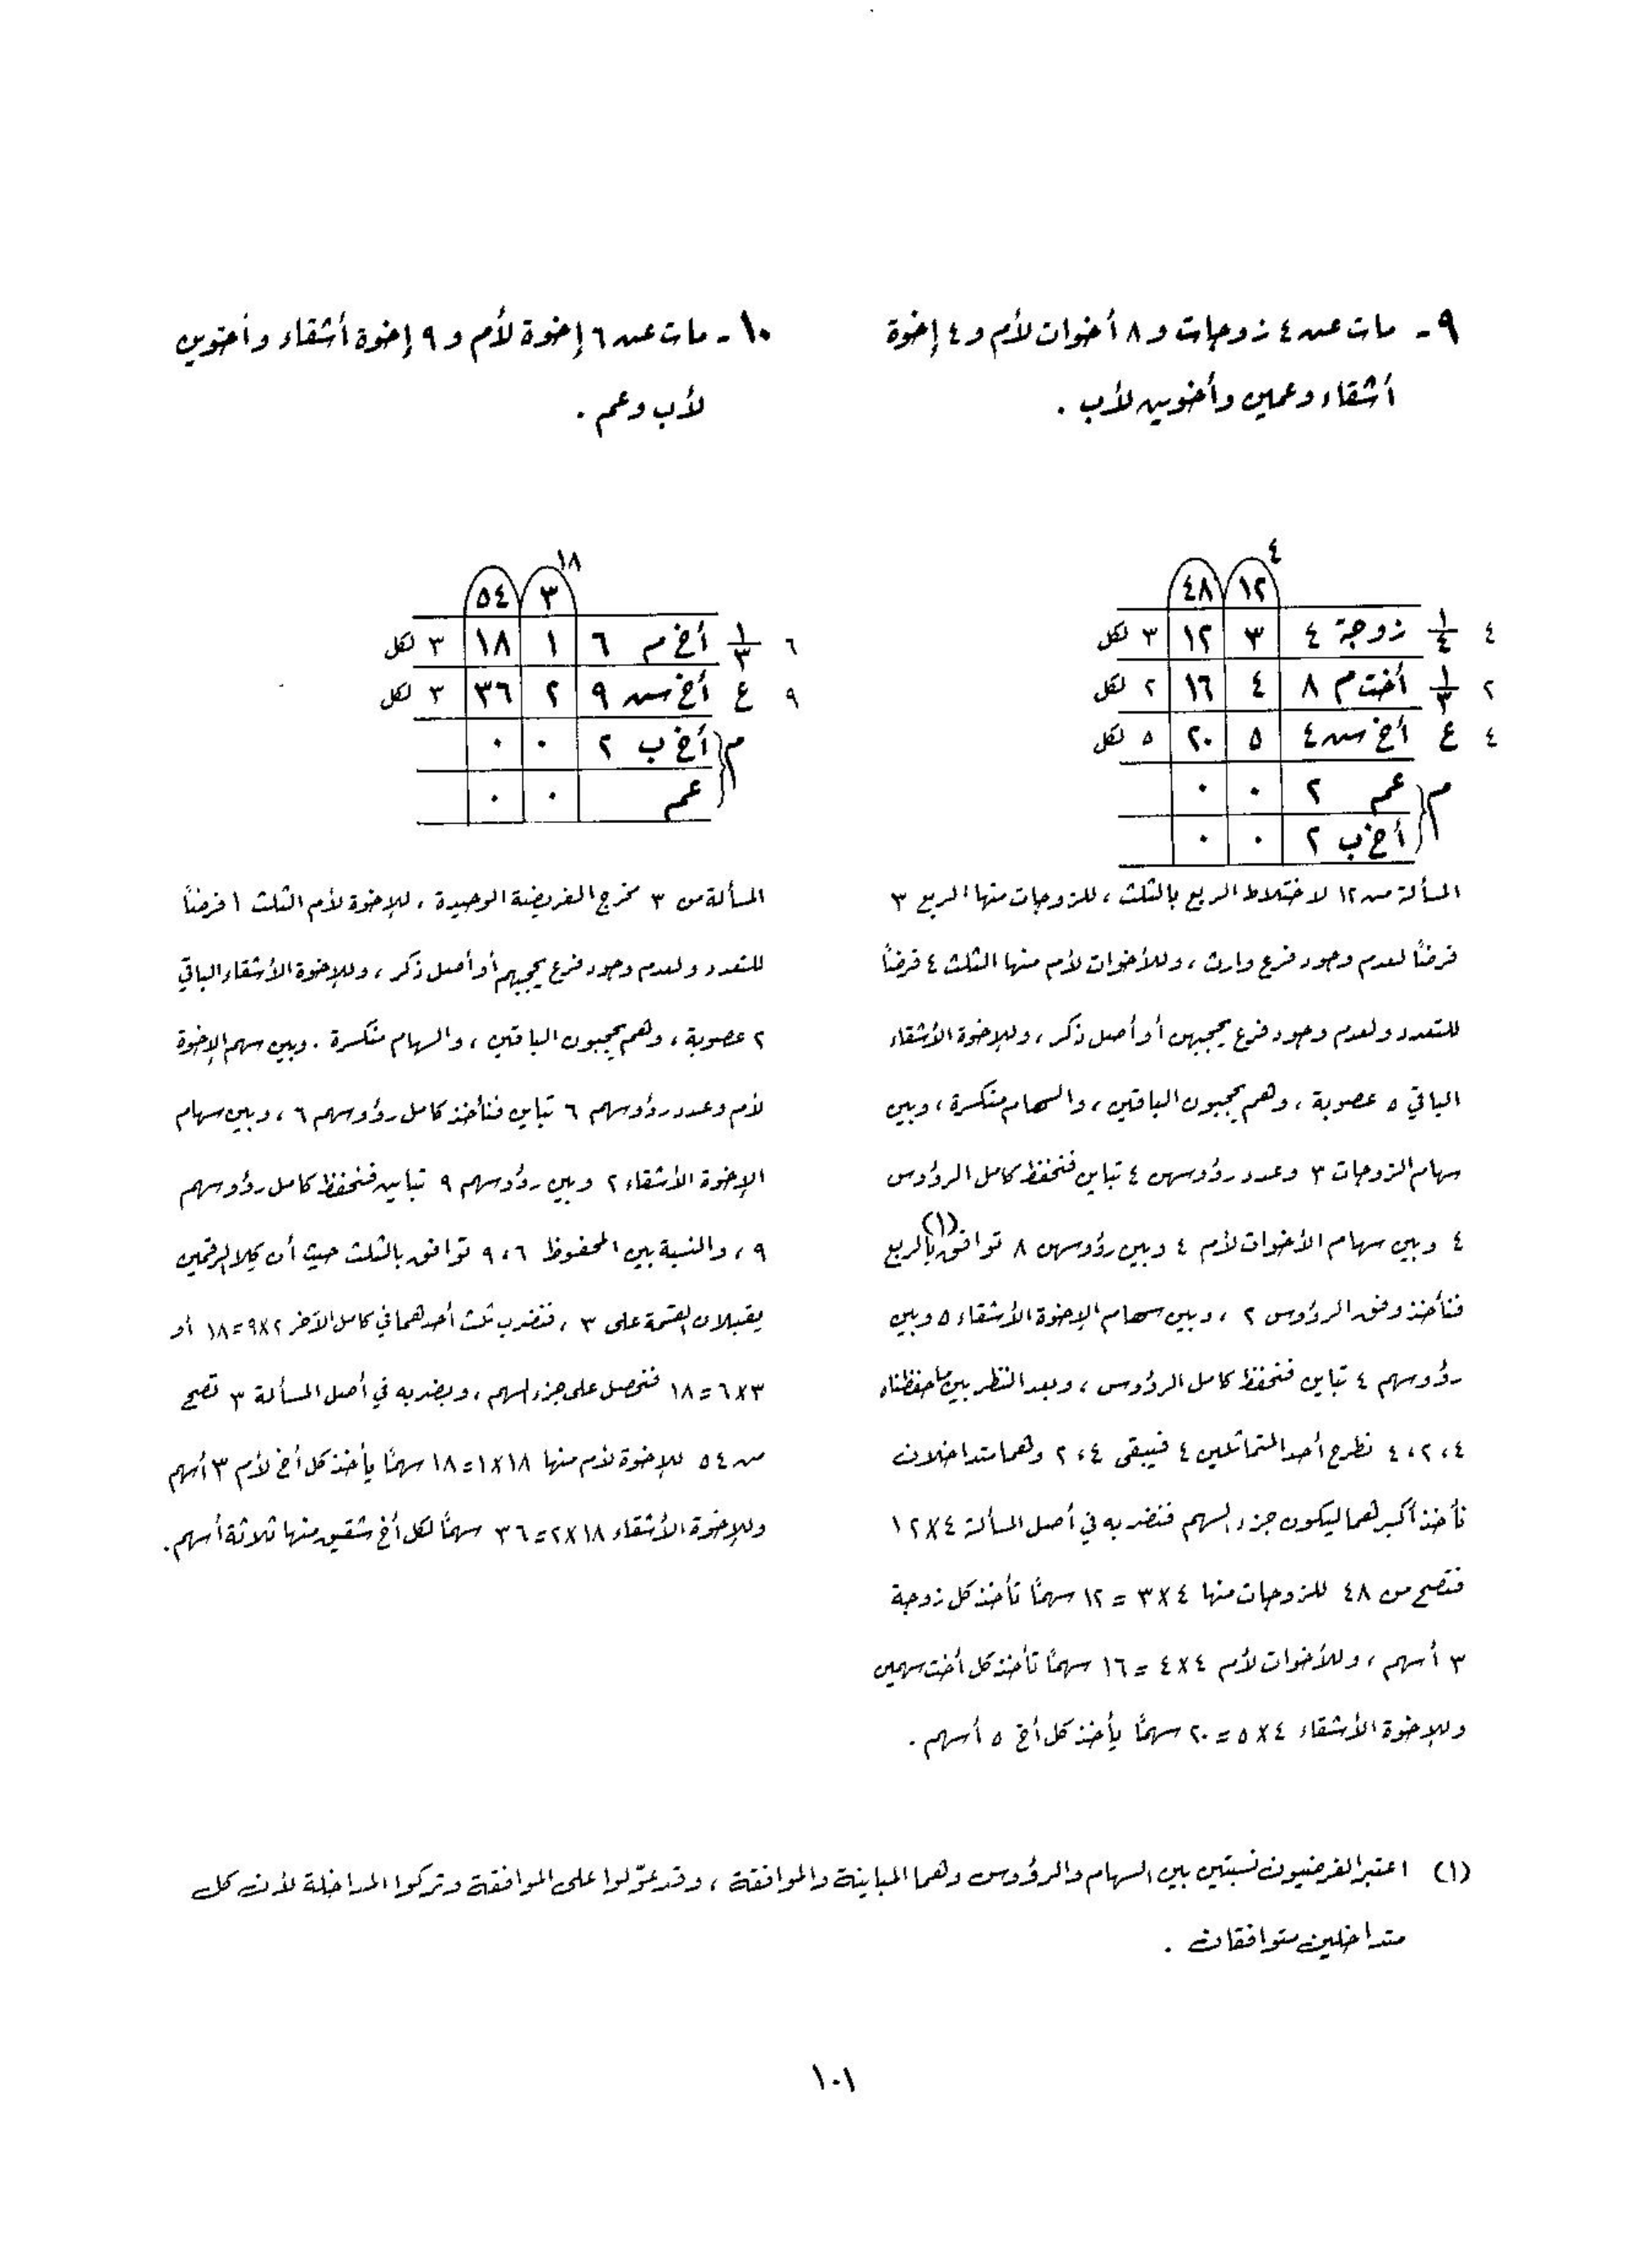 ٩ - مات عن ٤ زوجات و ٨ أخوات لأم و ٤ إخوة
أشقاء وعمين وأخوين لأب .
٤
١٢ ٤٨
٤ ١/٤ زوجة ٤ ٣ ١٢ ٣ لكل
٢ ١/٣ أخت م ٨ ٤ ١٦ ٢ لكل
٤ ع أخ س ٤ ٥ ٢٠ ٥ لكل
م عم ٢ ٠ ٠
أخ ب ٢ ٠ ٠
المسألة من ١٢ لاختلاط الربع بالثلث ، للزوجات منها الربع ٣
فرضاً لعدم وجود فرع وارث ، وللأخوات لأم منها الثلث ٤ فرضاً
للتعدد ولعدم وجود فرع يحجبهن أو أصل ذكر ، وللإخوة الأشقاء
الباقي ٥ عصوبة ، وهم يحجبون الباقين ، والسهام منكسرة ، وبين
سهام الزوجات ٣ وعدد رؤوسهن ٤ تباين فنحفظ كامل الرؤوس
٤ وبين سهام الأخوات لأم ٤ وبين رؤوسهن ٨ توافق بالربع (١)
فنأخذ وفق الرؤوس ٢ ، وبين سهام الإخوة الأشقاء ٥ وبين
رؤوسهم ٤ تباين فنحفظ كامل الرؤوس ، وبعد النظر بين ما حفظناه
٤ ، ٢ ، ٤ نطرح أحد المتماثلين ٤ فيبقى ٤ ، ٢ وهما متداخلان
نأخذ أكبرهما ليكون جزء السهم فنضربه في أصل المسألة ٤×١٢
فتصح من ٤٨ للزوجات منها ٤×٣ = ١٢ سهماً تأخذ كل زوجة
٣ أسهم ، وللأخوات لأم ٤×٤ = ١٦ سهماً تأخذ كل أخت سهمين
وللإخوة الأشقاء ٤×٥ = ٢٠ سهماً يأخذ كل أخ ٥ أسهم .
١٠ - مات عن ٦ إخوة لأم و ٩ إخوة أشقاء وأخوين
لأب وعم .
١٨
٣ ٥٤
٦ ١/٣ أخ م ٦ ١ ١٨ ٣ لكل
٩ ع أخ س ٩ ٢ ٣٦ ٣ لكل
م أخ ب ٢ ٠ ٠
عم ٠ ٠
المسألة من ٣ مخرج الفريضة الوحيدة ، للإخوة لأم الثلث ١ فرضاً
للتعدد ولعدم وجود فرع يحجبهم أو أصل ذكر ، وللإخوة الأشقاء الباقي
٢ عصوبة ، وهم يحجبون الباقين ، والسهام منكسرة . وبين سهم الإخوة
لأم وعدد رؤوسهم ٦ تباين فنأخذ كامل رؤوسهم ٦ ، وبين سهام
الإخوة الأشقاء ٢ وبين رؤوسهم ٩ تباين فنحفظ كامل رؤوسهم
٩ ، والنسبة بين المحفوظ ٦ ، ٩ توافق بالثلث حيث أن كلا الرقمين
يقبلان القسمة على ٣ ، فنضرب ثلث أحدهما في كامل الآخر ٢×٩=١٨ أو
٣×٦ = ١٨ فنحصل على جزء السهم ، وبضربه في أصل المسألة ٣ تصح
من ٥٤ للإخوة لأم منها ١٨×١ = ١٨ سهماً يأخذ كل أخ لأم ٣ أسهم
وللإخوة الأشقاء ١٨×٢ = ٣٦ سهماً لكل أخ شقيق منها ثلاثة أسهم .
(١) اعتبر الفرضيون نسبتين بين السهام والرؤوس وهما المباينة والموافقة ، وقد عوّلوا على الموافقة وتركوا المداخلة لأن كل
متداخلين متوافقان .
١٠١